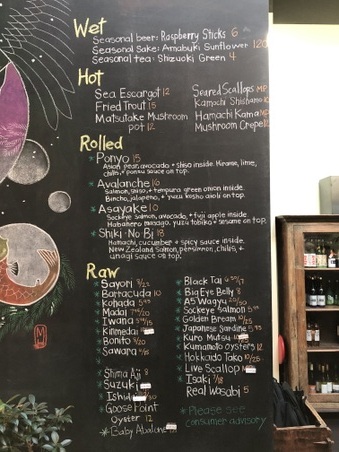 Wet
Seasonal beer: Raspberry Sticks 6
Seasonal Sake: Amabuki Sunflower 120
Seasonal tea: Shizuoki Green 4
Hot
Sea Escargot 12
Fried Trout 15
Matsutake Mushroom
pot 12
Seared Scallops MP
Kamochi Shishamo
Hamachi Kama MP
Mushroom Crepe
Rolled
Ponyo 15
Asian pear, avocado + shiso inside. Hirame, lime,
chili, + ponzu sauce on top.
Avalanche 16
Salmon, shiso, + tempura green onion inside.
Bincho, jalapeno, + yuzu kosho aioli on top.
Asayake 10
Sockeye salmon, avocado, + fuji apple inside.
Habanero masago, yuzu tobiko + sesame on top.
Shiki No Bi 18
Hamachi, cucumber + spicy sauce inside.
New Zealand Salmon, persimmon, chilis, +
unagi sauce on top.
Raw
Sayori
Barracuda 10
Kohada
Madai
Iwana
Kinmedai
Bonito
Sawara
Shima Aji 8
Suzuki
Goose Point
Oyster 12
Baby Abalone
Black Tai
Big Eye Belly 8
A5 Wagyu 20/50
Sockeye Salmon
Golden Bream 10/25
Japanese Sardine
Kuro Mutsu
Kumamoto oysters 12
Hokkaido Tako 10/25
Live Scallop
Isaki
Real Wasabi 5
*Please see
consumer advisory